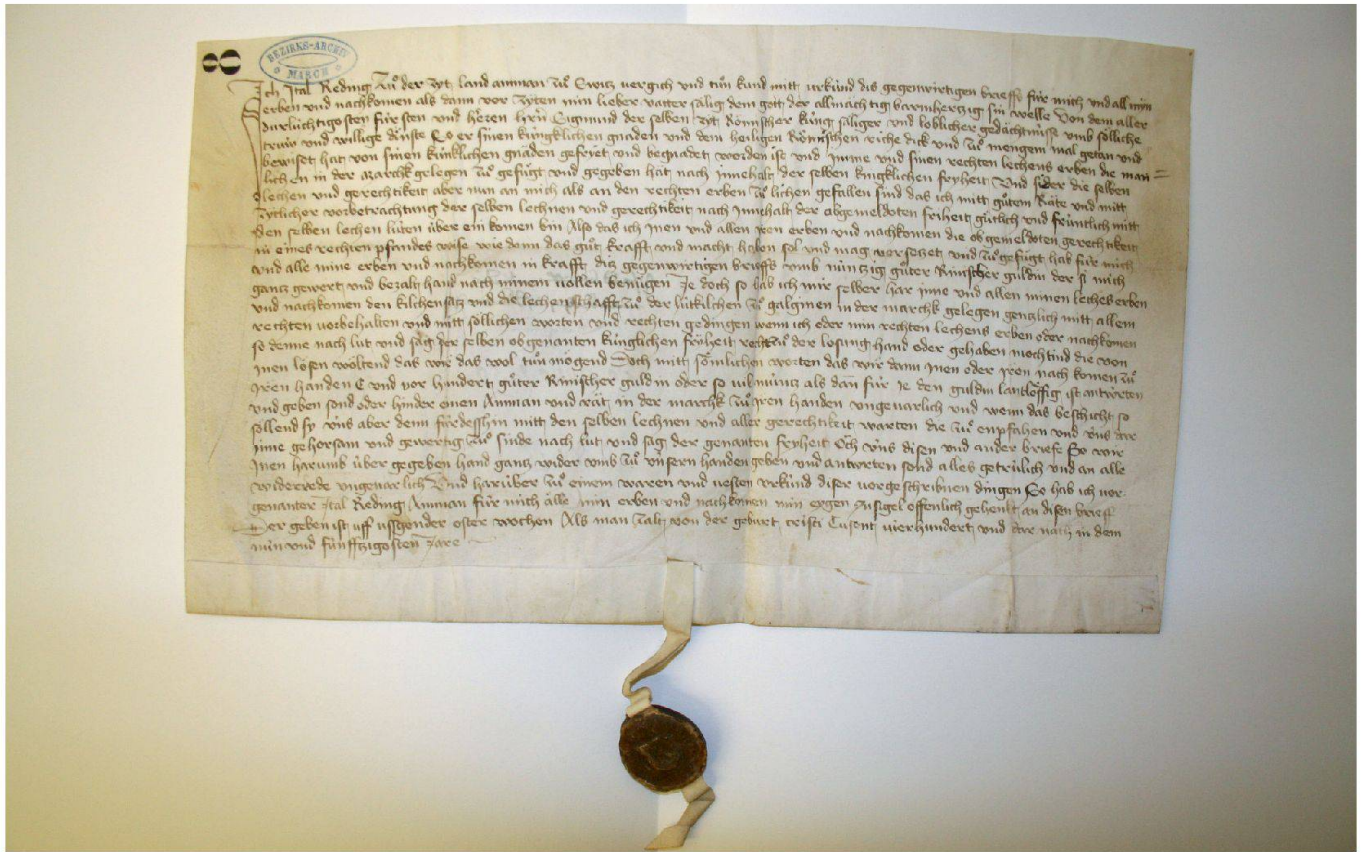 8
BEZIRKS-ARCHIV
MARCH
Ich Jtal Reding zů der zyt land amman zů Switz vergich vnd tůn kund mitt vrkund dis gegenwirtigen brieffs für mich vnd all min
erben vnd nachkomen als dann vor zyten min lieber vatter sälig dem gott der allmächtig barmhertzig sin welle Von dem aller
durlüchtigosten fürsten vnd herren hern Sigmund der selben zyt Römscher küng säliger vnd loblicher gedächtnüss vmb sölliche
trüw vnd willige dienste So er sinen küngklichen gnaden vnd dem heiligen Römschen riche dick vnd zů mengem mal getan vnd
bewiset hat von sinen küncklichen gnaden gefryet vnd begnadet worden ist vnd imme vnd sinen rechten lechens erben die man=
lichen in der March gelegen zů gefügt vnd gegeben hat nach innehalt der selben kungklichen fryheit Vnd sider die selben
lechen vnd gerechtikeit aber nun an mich als an den rechten erben zů lichen gefallen sind das ich mitt gůtem Räte vnd mitt
zytlicher vorbetrachtung der selben lechnen vnd gerechtikeit nach innhalt der abgemeldoten friheit gütlich vnd früntlich mitt
den selben lechen lüten über ein komen bin Also das ich Jnen vnd allen Jren erben vnd nachkomen die obgemeldoten gerechtikeit
in eines rechten pfandes wise wie denn das gůt krafft vnd macht haben sol vnd mag versetzet vnd zů gefügt hab für mich
vnd alle mine erben vnd nachkomen in krafft diz gegenwirtigen brieffs vmb nüntzig gůter Rinscher guldin der si mich
gantz gewert vnd bezalt hand nach minem vollen benügen Je doch so hab ich mir selber har inne vnd allen minen lechens erben
vnd nachkomen den kilchensatz vnd die lechenschafft zů der lütkilchen zů galginen in der march gelegen gentzlich mitt allem
rechten vorbehalten vnd mitt söllichen worten vnd rechten gedingen wenn ich oder min rechten lechens erben oder nachkomen
so denne nach lut vnd sag der selben obgenanten künglichen fryheit recht zů der losung hand oder gehaben möchtind die von
Jnen lösen wöltend das wir das wol tůn mögend Doch mitt sömlichen worten das wir dann Jnen oder jren nach komen zů
Jren handen C vnd vor hundert gůter Rinischer guldin oder so vil müntz als dan für je den guldin lantlöffig ist antwirten
vnd geben sond oder hinder einen Amman vnd rät in der march zů jren handen vngeuarlich vnd wenn das beschicht so
sollend sy vns aber denn fürdesshin mitt den selben lechnen vnd aller gerechtikeit warten die zů enpfahen vnd vns dar
jnne gehorsam vnd gewertig zů sinde nach lut vnd sag der genanten fryheit Och vns disen vnd ander brieff So wir
Jnen harumb über gegeben hand gantz wider vmb zů vnsern handen geben vnd antwirten sond alles getrülich vnd an alle
widerrede vngeuarlich Vnd harüber zů einem waren vnd uesten vrkund diser vorgeschribnen dingen So hab ich vor-
genanter Jtal Reding Amman für mich alle min erben vnd nachkomen min eygen Jnsigel offenlich gehenkt an disen brieff
Der geben ist vff vssgender oster wochen Als man zalt von der gebürt cristi Tusent vierhundert vnd dar nach in dem
nün vnd fünffzigosten Jare